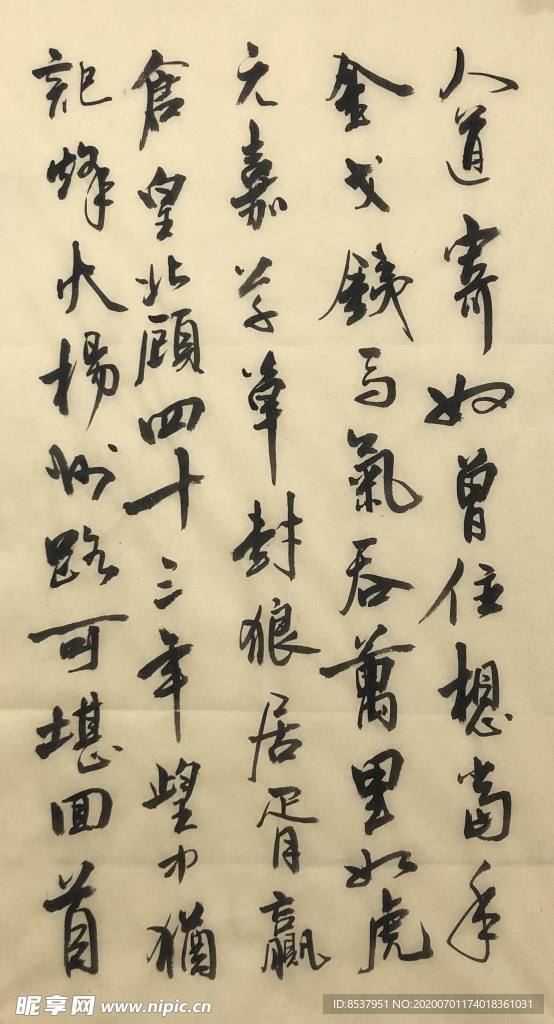 人道寄奴曾住想當年
金戈鐵馬氣吞萬里如虎
元嘉草草封狼居胥贏
倉皇北顧四十三年望中猶
記烽火揚州路可堪回首
昵享网 www.nipic.cn
ID:8537951 NO:20200701174018361031